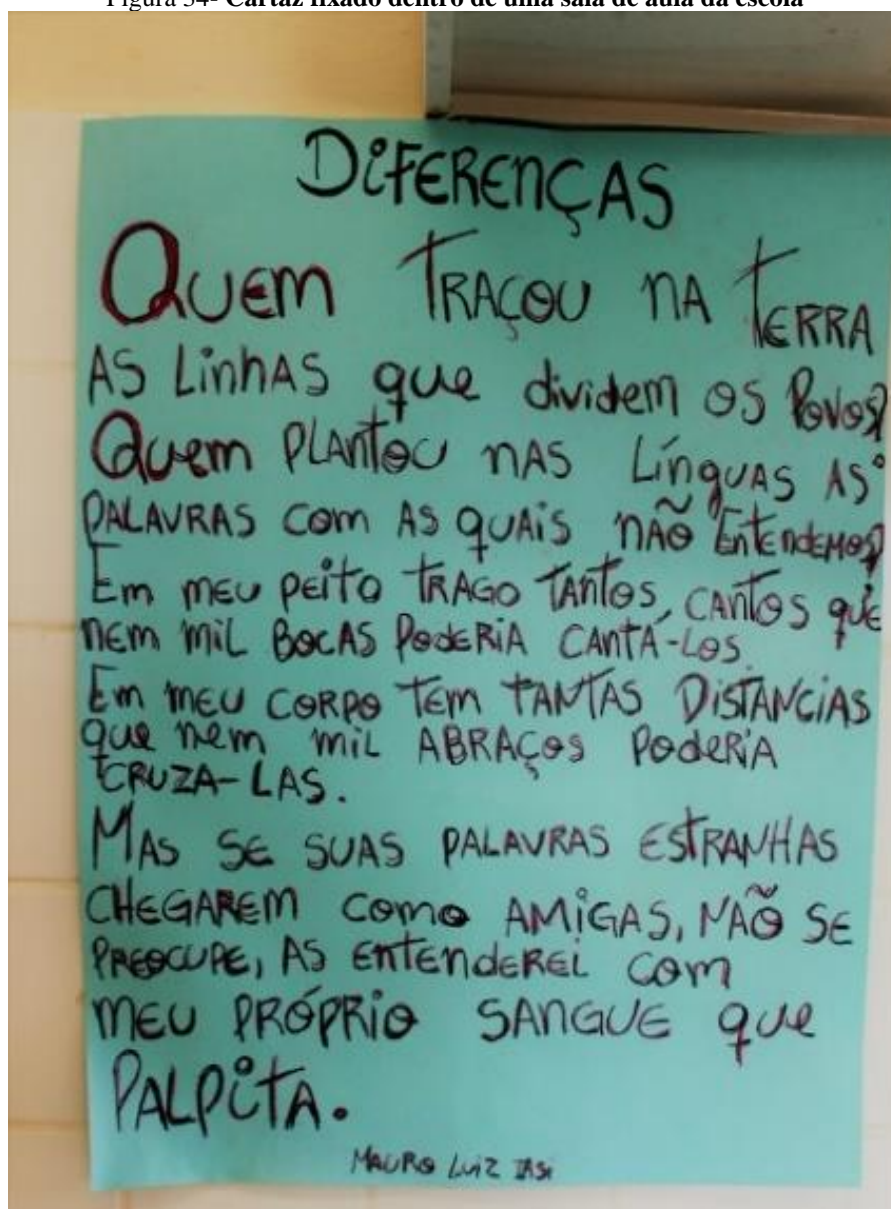 Figura 34- Cartaz fixado dentro de uma sala de aula da escola
DiFERENÇAS
QUEM TRAÇOU NA TERRA
AS LinhAS que dividem OS POVOS?
QUEM PLANTOU NAS LínguAS AS
PALAVRAS COM AS QUAIS NÃO EntENDEMOS?
Em MEU PEITO TRAGO TANTOS, CANTOS QUE
NEM MIL BOCAS PODERIA CANTÁ-LOS.
Em MEU CORPO TEM TANTAS DISTANCIAS
que NEM MIL ABRAÇOS PODERIA
CRUZA-LAS.
MAS SE SUAS PALAVRAS ESTRANHAS
CHEGAREM COMO AMIGAS, NÃO SE
PREOCUPE, AS ENTENDEREI COM
MEU PRÓPRIO SANGUE que
PALPITA.
MAURO LUIZ IASI